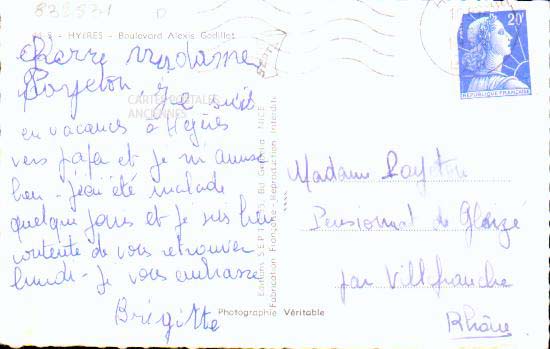 838531 D
8 - HYÈRES - Boulevard Alexis Godillot
20F
REPUBLIQUE FRANÇAISE
Chère Madame
Payeton, je suis
CARTES POSTALES
ANCIENNES
en vacances à Hyères
vers papa et je m'amuse
bien. j'ai été malade
quelque jours et je suis bien
contente de vous retrouver
lundi - je vous embrasse
Brigitte
Editions SEPT
NICE
Fabrication Française - Reproduction Interdite
Photographie Véritable
Madame Payeton
Pensionnat de Gleizé
par Villefranche
Rhône